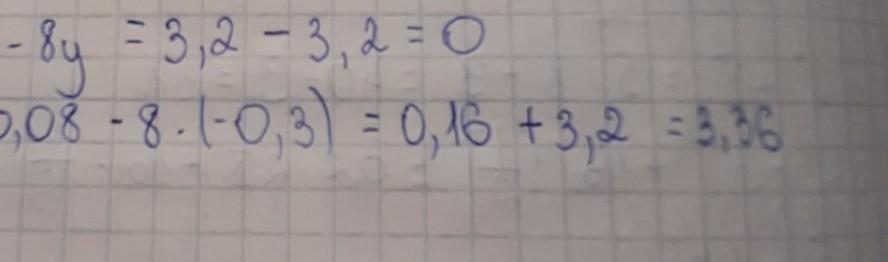 -8y = 3,2 - 3,2 = 0
0,08 - 8 · (-0,3) = 0,16 + 3,2 = 3,36